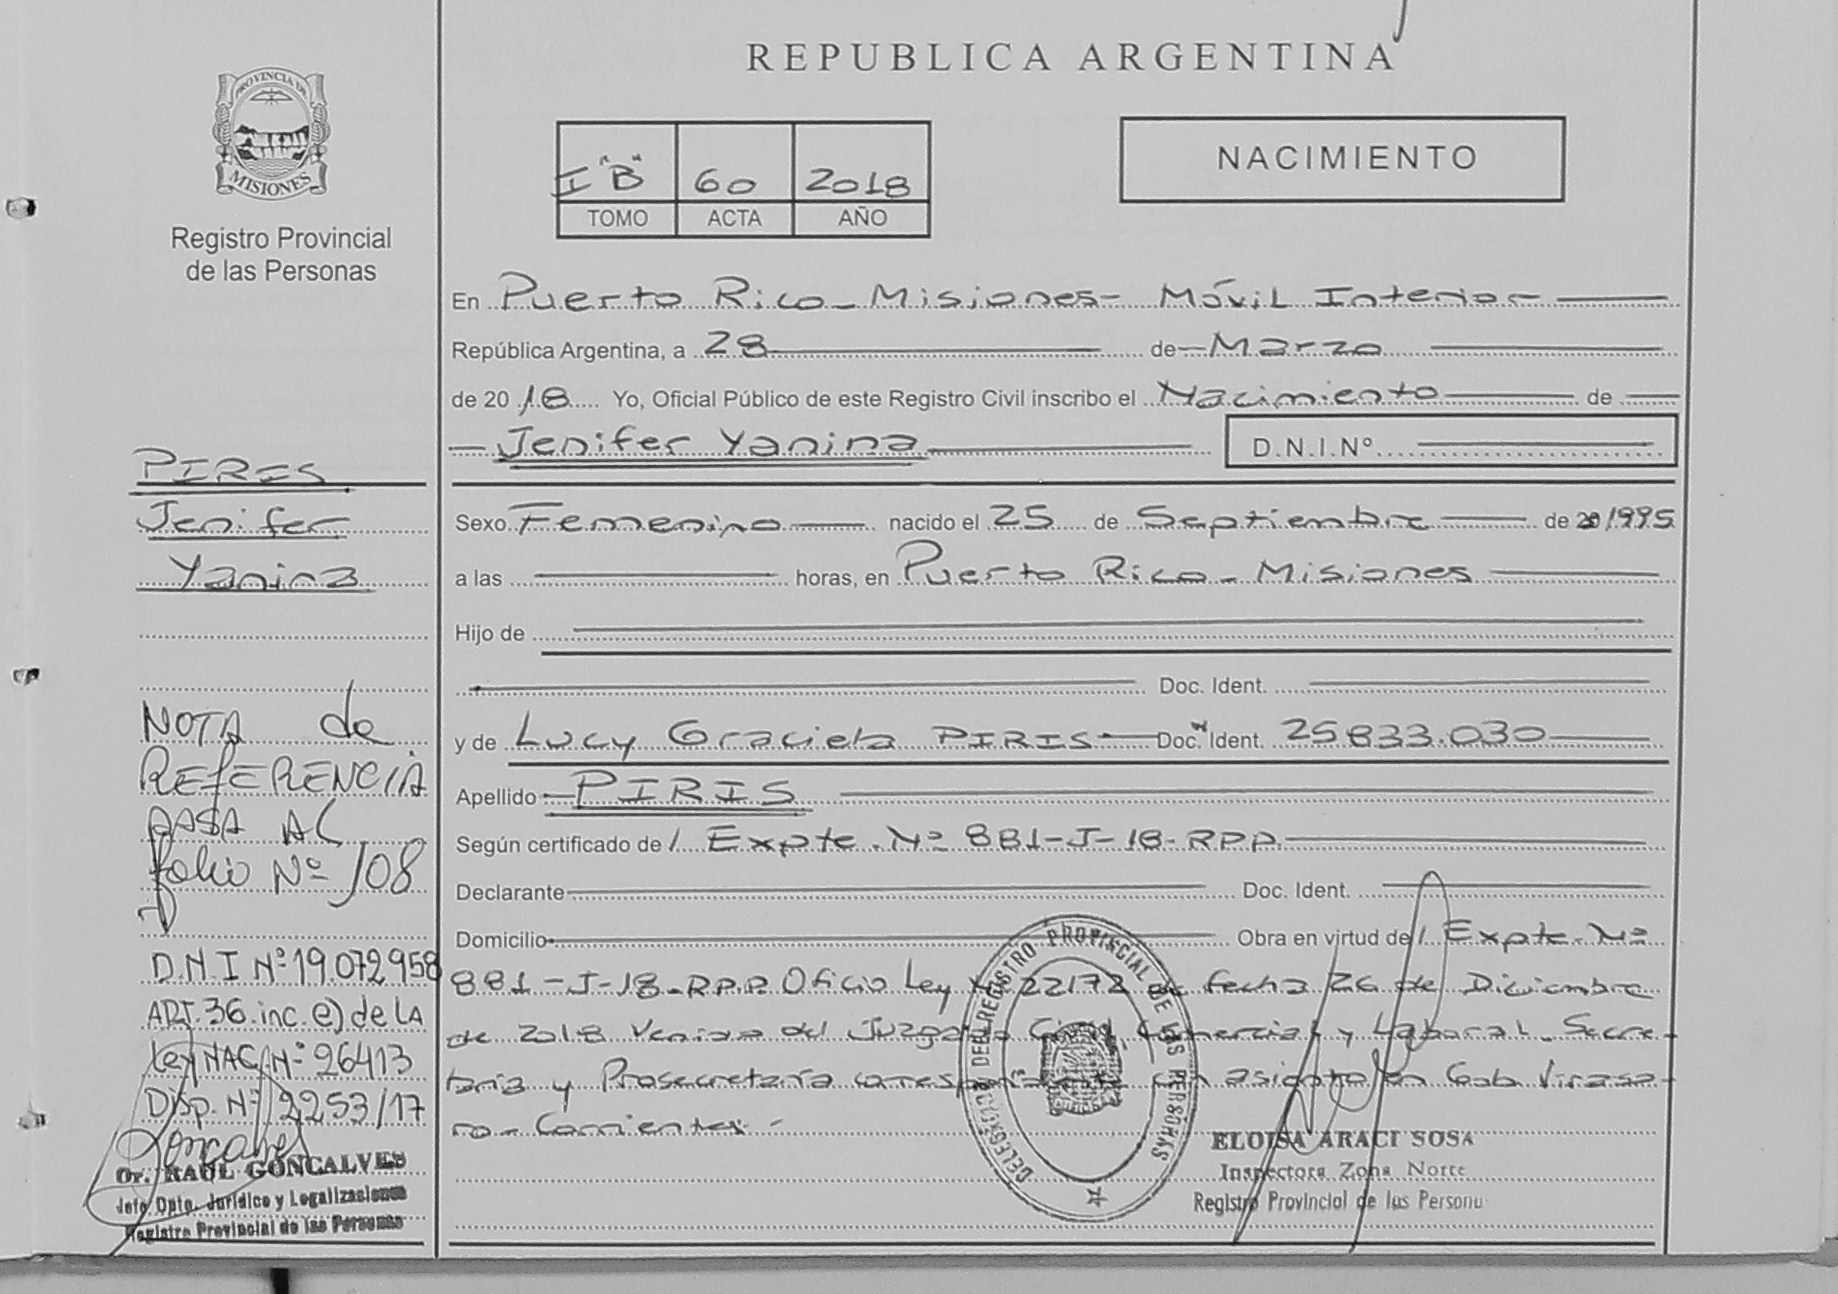 PROVINCIA DE
MISIONES
Registro Provincial
de las Personas
PIRES
Jenifer
Yanina
NOTA de
REFERENCIA
PASA AL
folio Nº 108
D.N.I Nº 19.072958
ART. 36 inc. e) de LA
Ley NAC. Nº 26413
Disp. Nº 2253/17
Goncalves
Dr. RAUL GONCALVES
Jefe Dpto. Jurídico y Legalizaciones
Registro Provincial de las Personas
REPUBLICA ARGENTINA
I "B" 60 2018
TOMO ACTA AÑO
NACIMIENTO
En Puerto Rico - Misiones - Móvil Interior
República Argentina, a 28 de Marzo
de 2018 Yo, Oficial Público de este Registro Civil inscribo el Nacimiento de
Jenifer Yanina D.N.I.Nº
Sexo Femenino nacido el 25 de Septiembre de 20 1995
a las horas, en Puerto Rico - Misiones
Hijo de
Doc. Ident.
y de Lucy Graciela PIRIS Doc. Ident. 25833.030
Apellido PIRIS
Según certificado de / Expte. Nº 881-J-18-RPP.
Declarante Doc. Ident.
Domicilio Obra en virtud de / Expte. Nº
881-J-18-RPP. Oficio Ley Nº 22172 de fecha 26 de Diciembre
de 2018 Venido del Juzgado Civil, Comercial y Laboral - Secre-
taria y Prosecretaría correspondiente con asiento en Gob. Viraso-
ro - Corrientes -
DELEGACION DEL REGISTRO PROVINCIAL DE LAS PERSONAS
ELOISA ARACI SOSA
Inspectora Zona Norte
Registro Provincial de las Persona